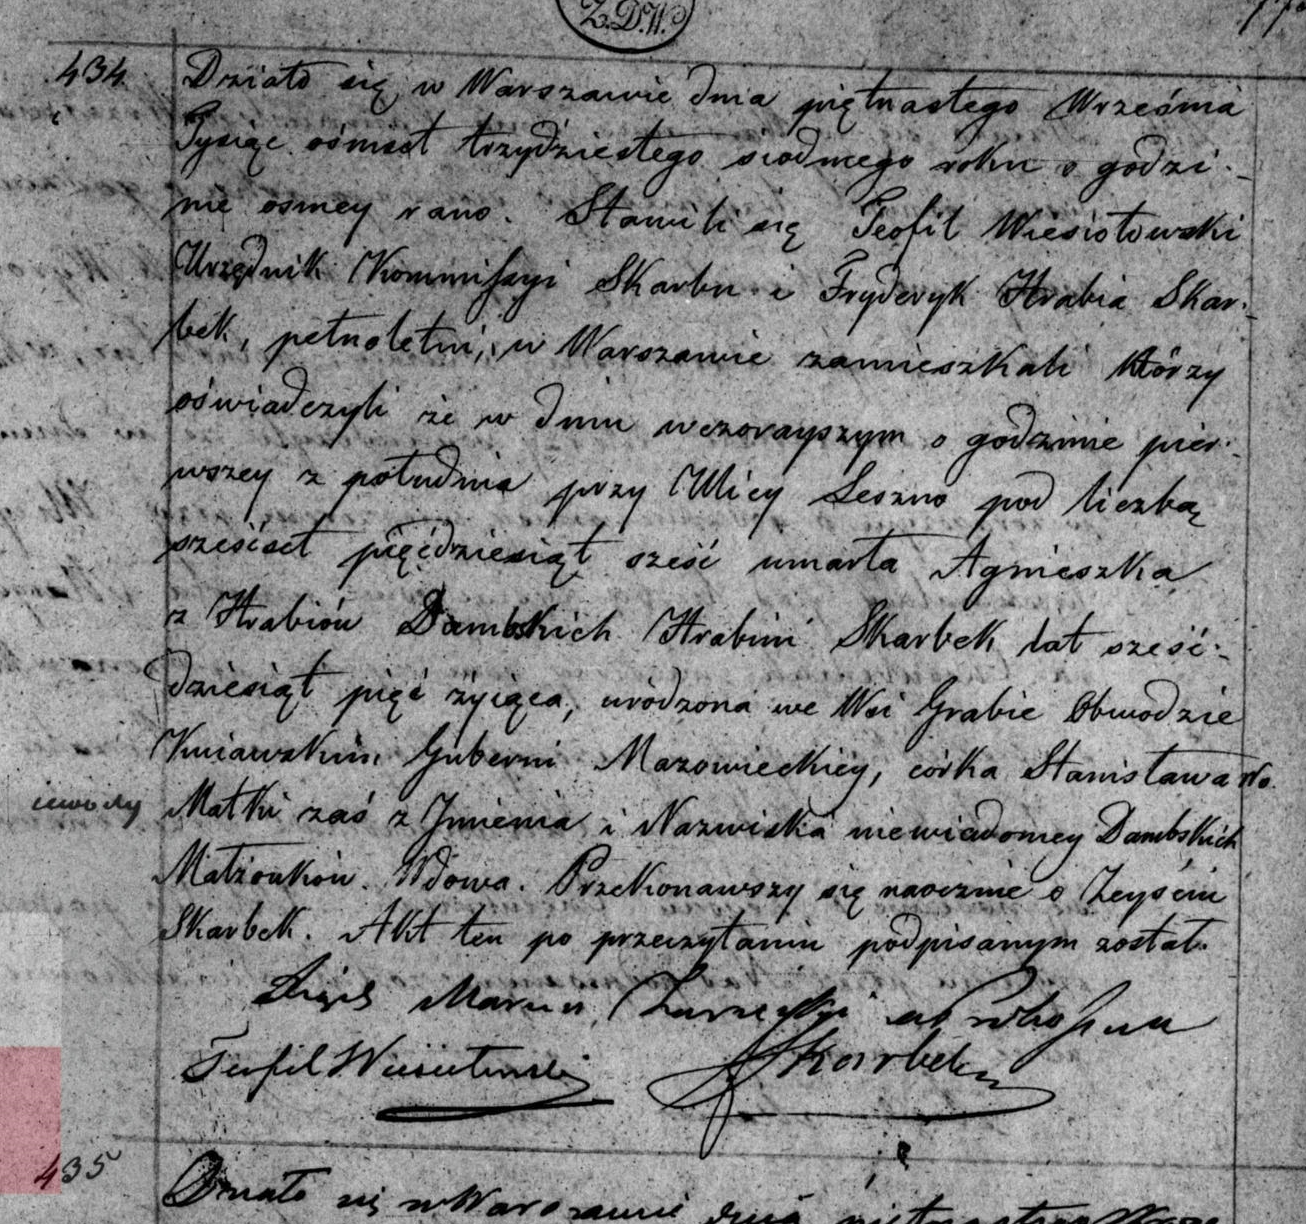 Z.D.W.
434
Działo się w Warszawie dnia piętnastego Września
Tysiąc ośmset trzydziestego siodmego roku o godzi-
nie osmey rano. Stawili się Teofil Wiesiołowski
Urzędnik Kommissyi Skarbu i Fryderyk Hrabia Skar-
bek, pełnoletni, w Warszawie zamieszkali którzy
oświadczyli że w dniu wczorayszym o godzinie pier-
wszey z południa przy Ulicy Leszno pod liczbą
sześćset pięćdziesiąt sześć umarła Agnieszka
z Hrabiów Dambskich Hrabini Skarbek lat sześć-
dziesiąt pięć żyiąca, urodzona we Wsi Grabie Obwodzie
Kuiawskim Gubernii Mazowieckiey, córka Stanisława Wo
iewody Matki zaś z Jmienia i Nazwiska niewiadomey Dambskich
Małżonków. Wdowa. Przekonawszy się naocznie o Zeyściu
Skarbek. Akt ten po przeczytaniu podpisanym został.
Xiądz Marcin
Teofil Wiesiołowski Skarbek
435
Działo się w Warszawie dnia piętnastego